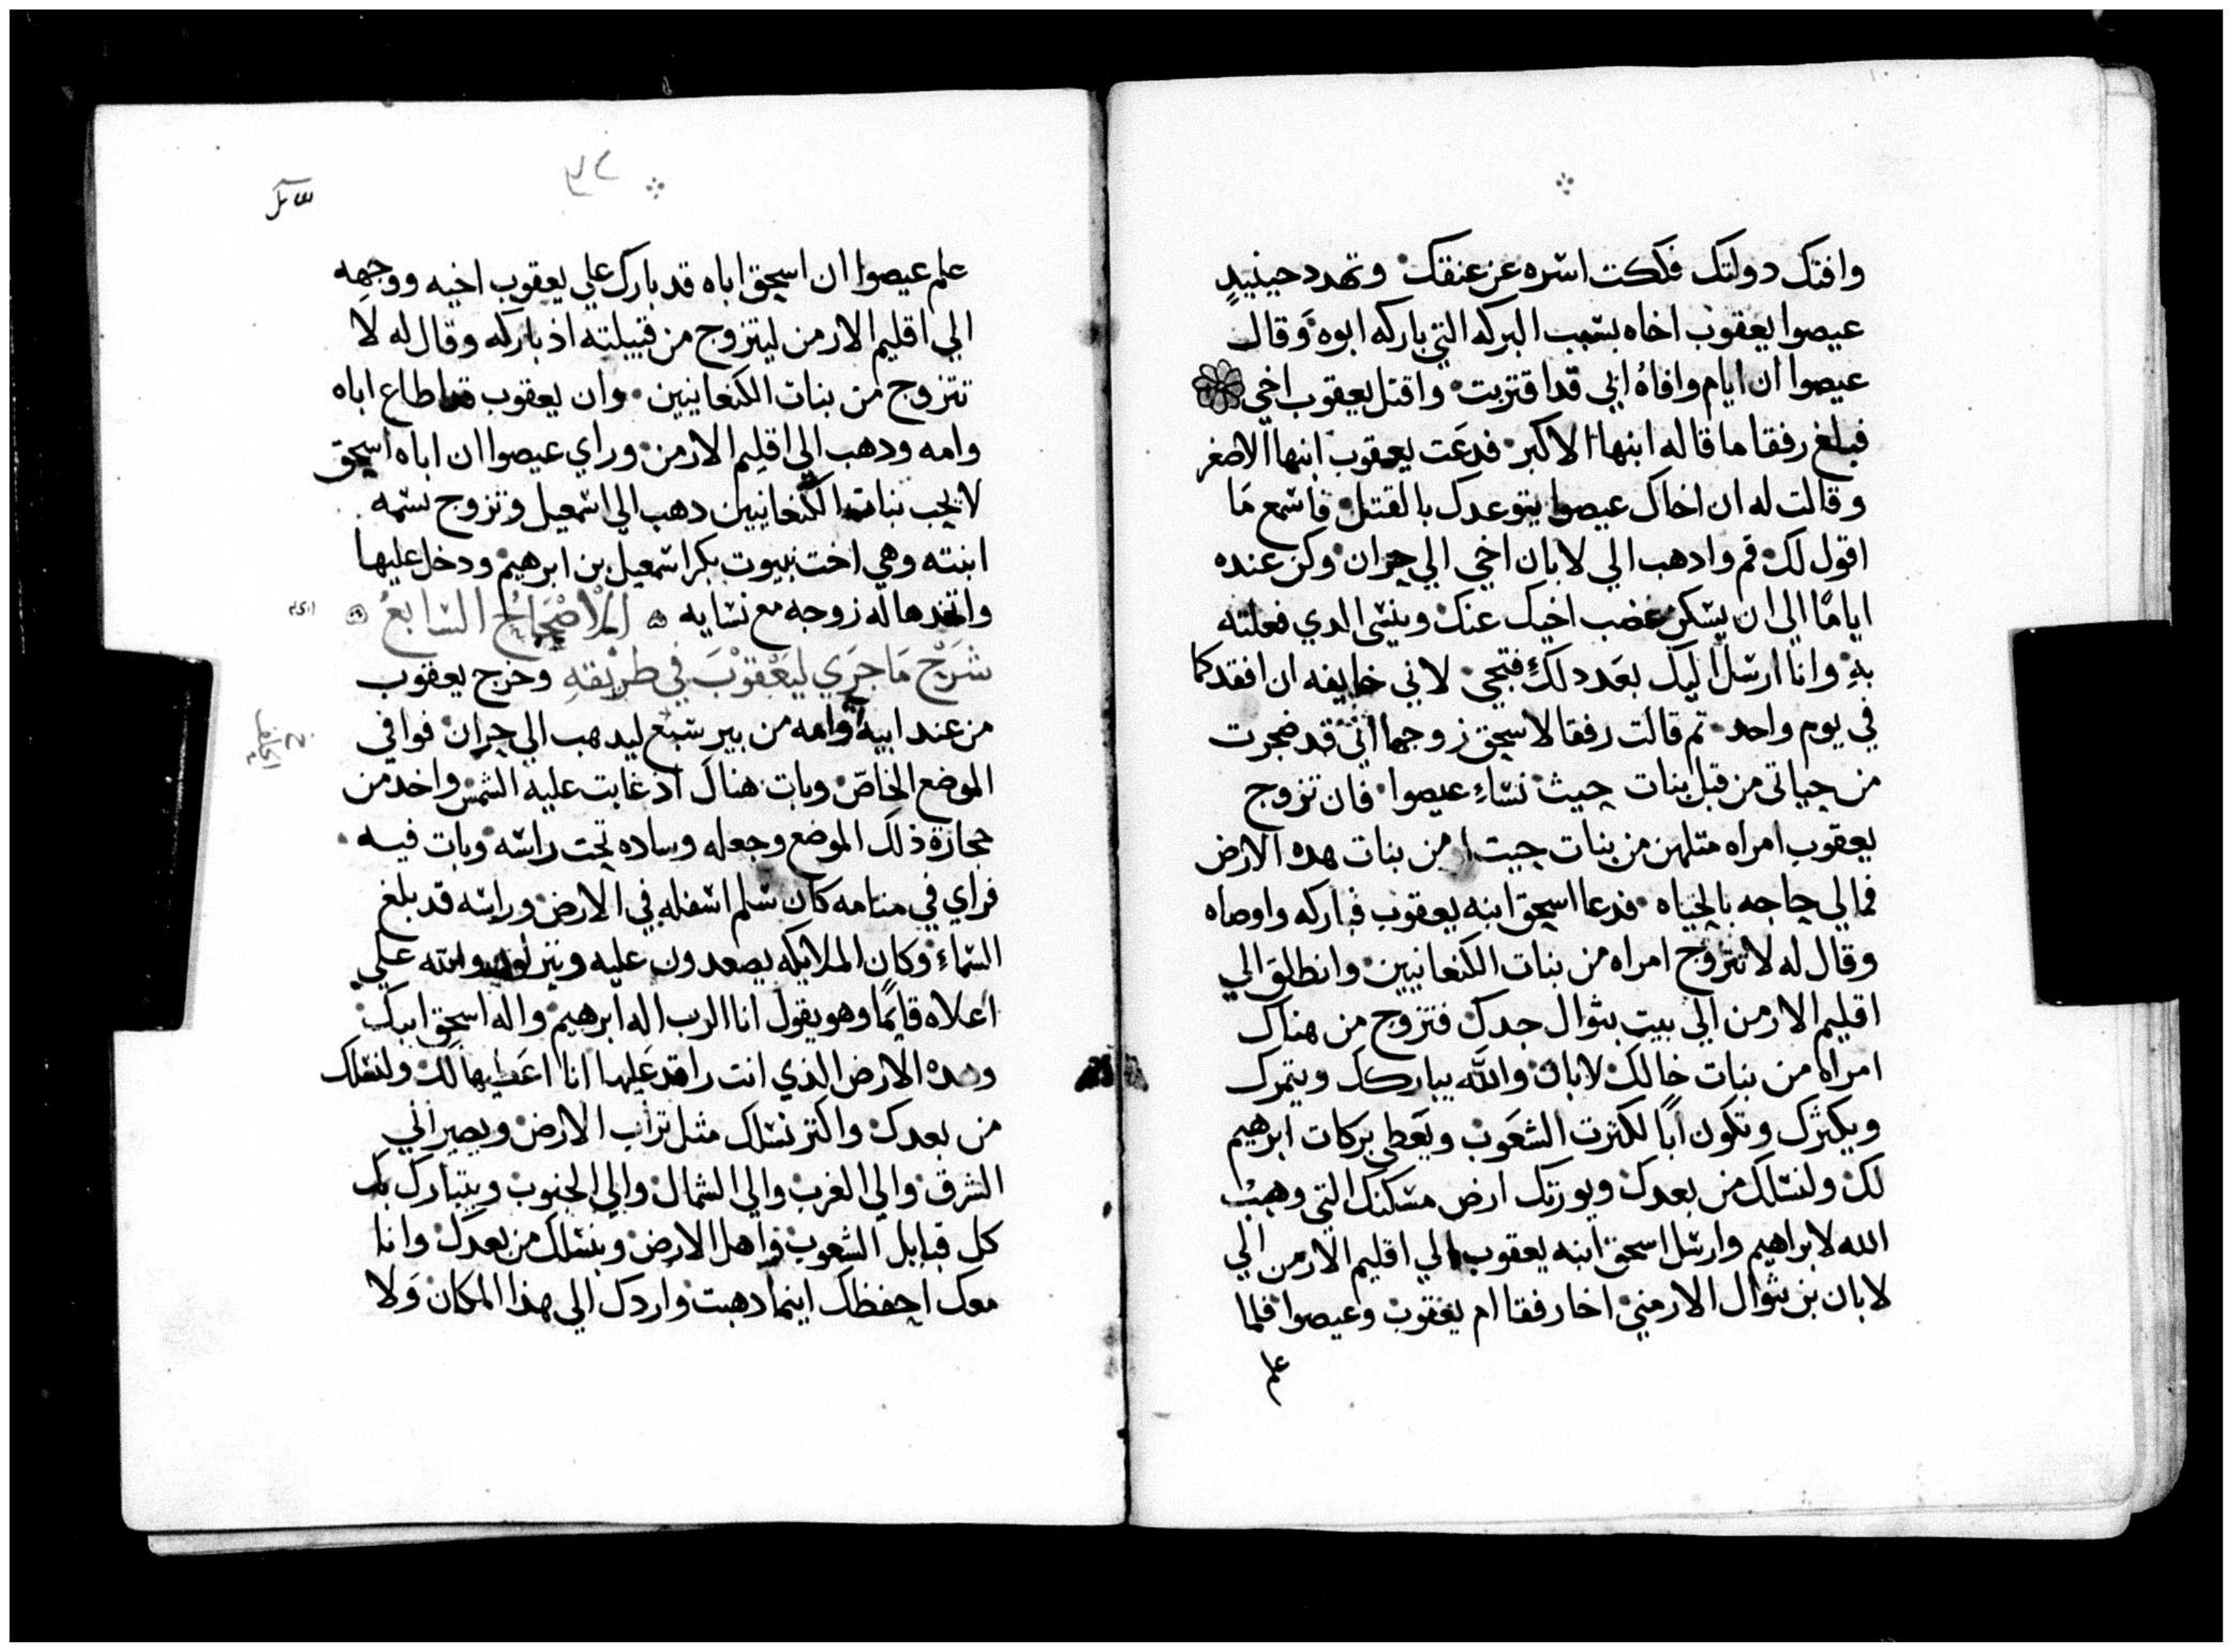 وافتك دولتك فككت اسره عن عنقك وتهدد حينيدٍ
عيصوا يعقوب اخاه بسبب البركه التي باركه ابوه وقال
عيصوا ان ايام وافاة ابي قد اقتربت واقتل يعقوب اخي
فبلغ رفقا ما قاله ابنها الاكبر فدعت يعقوب ابنها الاصغر
وقالت له ان اخاك عيصوا يتوعدك بالقتل فاسمع ما
اقول لك قم وادهب الي لابان اخي الي حران وكن عنده
اياما الي ان يسكن غضب اخيك عنك وينسي الدي فعلته
به وانا ارسل اليك بعد دلك فتجي لاني خايفه ان افقدكما
في يوم واحد تم قالت رفقا لاسحق زوجها انني قد ضجرت
من حياتي من قبل بنات حيث نساء عيصوا فان تزوج
يعقوب امراه متلهن من بنات حيت من بنات هده الارض
فما لي حاجه بالحياه فدعا اسحق ابنه يعقوب فباركه واوصاه
وقال له لا تتزوج امراه من بنات الكنعانيين وانطلق الي
اقليم الارمن الي بيت بثوال جدك فتزوج من هناك
امراه من بنات خالك لابان والله يباركك ويتمرك
ويكثرك وتكون ابا لكثرت الشعوب ويعطي بركات ابرهيم
لك ولنسلك من بعدك ويورتك ارض مسكنك التي وهب
الله لابراهيم وارسل اسحق ابنه يعقوب الي اقليم الارمن الي
لابان بن بثوال الارمني اخا رفقا ام يعقوب وعيصوا فلما
علم
علم عيصوا ان اسحق اباه قد بارك علي يعقوب اخيه ووجهه
الي اقليم الارمن ليتزوج من قبيلته اذ باركه وقال له لا
تتزوج من بنات الكنعانيين وان يعقوب قد اطاع اباه
وامه ودهب الي اقليم الارمن وراي عيصوا ان اباه اسحق
لا يحب بنات الكنعانيين دهب الي اسمعيل وتزوج بسمه
ابنته وهي اخت نبيوت بكر اسمعيل بن ابرهيم ودخل عليها
واتخدها له زوجه مع نسايه الاصحاح السابع
شرح ما جري ليعقوب في طريقه وخرج يعقوب
من عند ابيه وامه من بير سبع ليدهب الي حران فوافي
الموضع الخاص وبات هناك اذ غابت عليه الشمس واخد من
حجارة ذلك الموضع وجعله وساده تحت راسه وبات فيه
فراي في منامه كان سلم اسفله في الارض وراسه قد بلغ
السماء وكان الملايكه يصعدون عليه وينزلون والله علي
اعلاه قايما وهو يقول انا الرب اله ابرهيم واله اسحق ابيك
وهده الارض الذي انت راقد عليها انا اعطيها لك ولنسلك
من بعدك واكتر نسلك متل تراب الارض ويصير الي
الشرق والي الغرب والي الشمال والي الجنوب ويتبارك بك
كل قبايل الشعوب واهل الارض وبنسلك من بعدك وانا
معك احفظك اينما دهبت واردك الي هذا المكان ولا